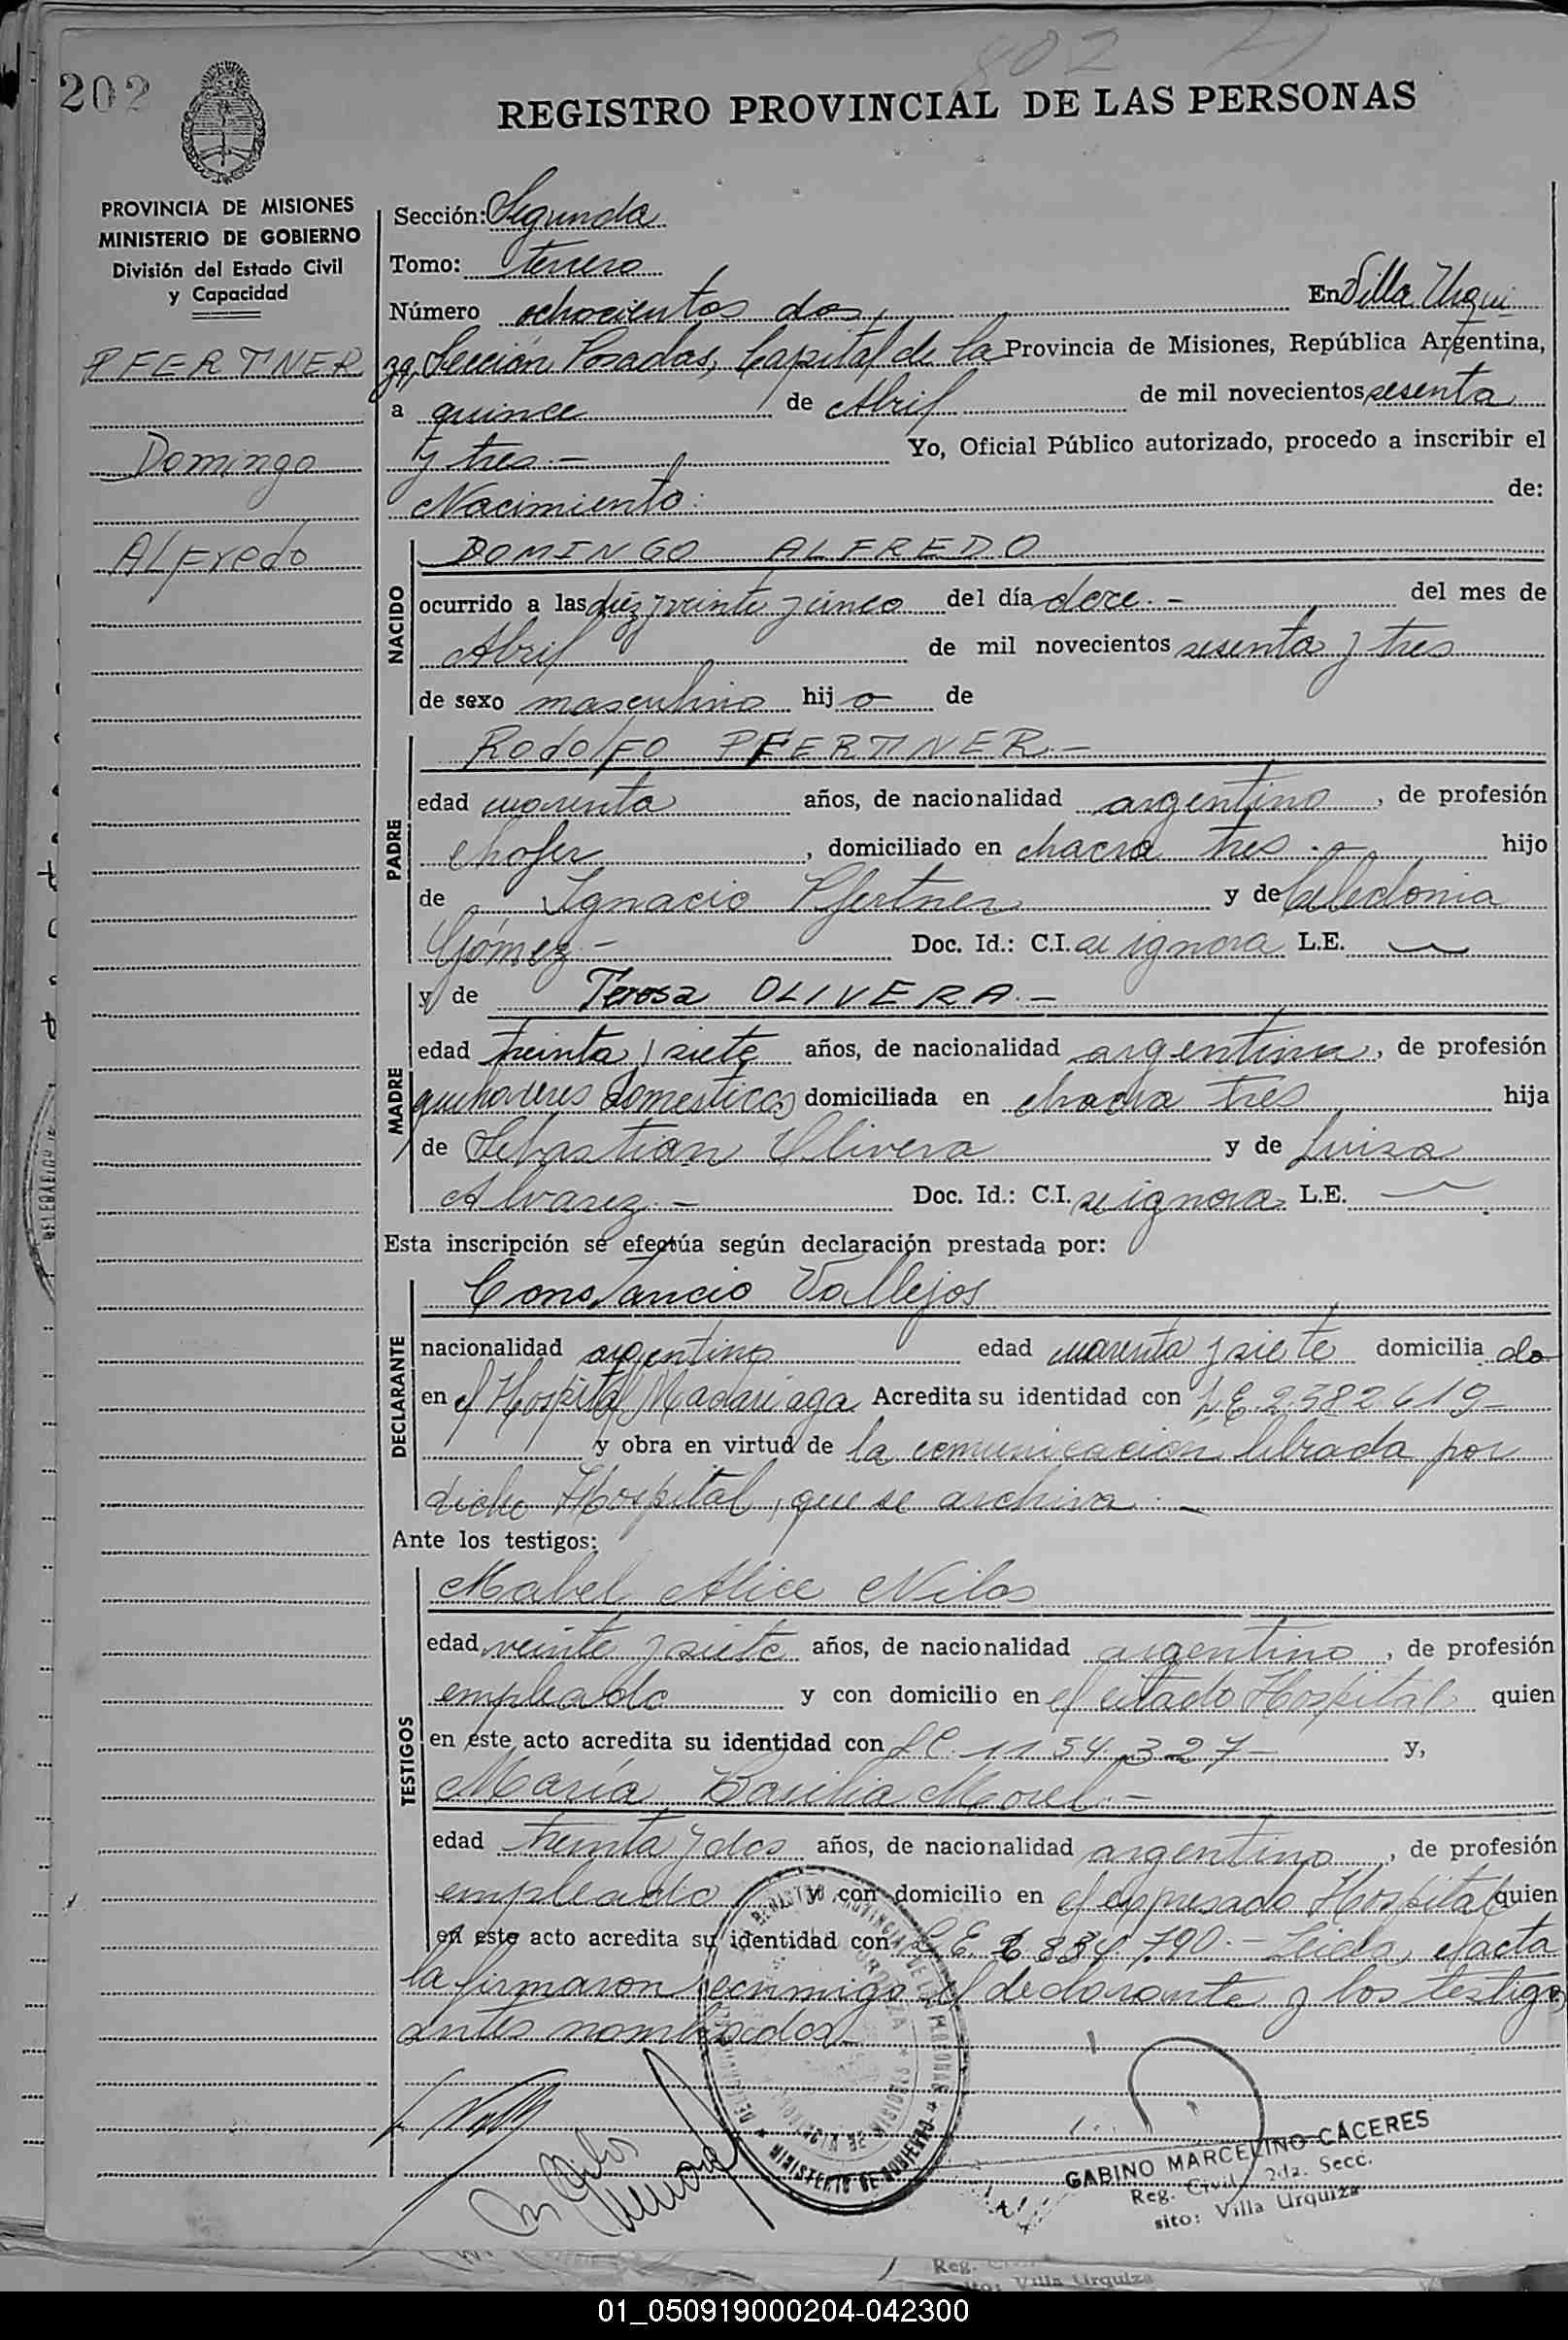 802
202
REGISTRO PROVINCIAL DE LAS PERSONAS
PROVINCIA DE MISIONES
MINISTERIO DE GOBIERNO
División del Estado Civil
y Capacidad
PFERTNER
Domingo
ALFredo
Sección: Segunda
Tomo: tercero
Número ochocientos dos, En Villa Urqui
za, Sección Posadas, Capital de la Provincia de Misiones, República Argentina,
a quince de Abril de mil novecientos sesenta
y tres.- Yo, Oficial Público autorizado, procedo a inscribir el
Nacimiento: de:
NACIDO
DOMINGO ALFREDO
ocurrido a las diez y veinte y cinco del día doce.- del mes de
Abril de mil novecientos sesenta y tres
de sexo masculino hijo de
PADRE
RodolFo PFERTNER.-
edad cuarenta años, de nacionalidad argentino, de profesión
chofer, domiciliado en chacra tres.- hijo
de Ignacio Pfertner y de Celedonia
Gómez.- Doc. Id.: C.I. se ignora L.E.
MADRE
y de Teresa OLIVERA.-
edad treinta y siete años, de nacionalidad argentina, de profesión
quehaceres domesticos domiciliada en chacra tres hija
de Sebastian Olivera y de Luisa
Alvarez.- Doc. Id.: C.I. se ignora. L.E.
Esta inscripción se efectúa según declaración prestada por:
DECLARANTE
Constancio Vallejos
nacionalidad argentino edad cuarenta y siete domicilia do
en el Hospital Madariaga Acredita su identidad con L.E. 2.382.619-
y obra en virtud de la comunicacion librada por
dicho Hospital, que se archiva.-
Ante los testigos:
TESTIGOS
Mabel Alice Nilos
edad veinte y siete años, de nacionalidad argentino, de profesión
empleado y con domicilio en el citado Hospital quien
en este acto acredita su identidad con LC. 1154.327- y,
María Basilia Morel.-
edad treinta y dos años, de nacionalidad argentino, de profesión
empleado y con domicilio en el expresado Hospital quien
en este acto acredita su identidad con L.E. 834.790.- Leida, el acta
la firmaron conmigo el declarante y los testigos
antes nombrados.-
GABINO MARCELINO CÁCERES
Reg. Civil 2da. Secc.
sito: Villa Urquiza
Reg.
sito: Villa Urquiza
01_050919000204-042300